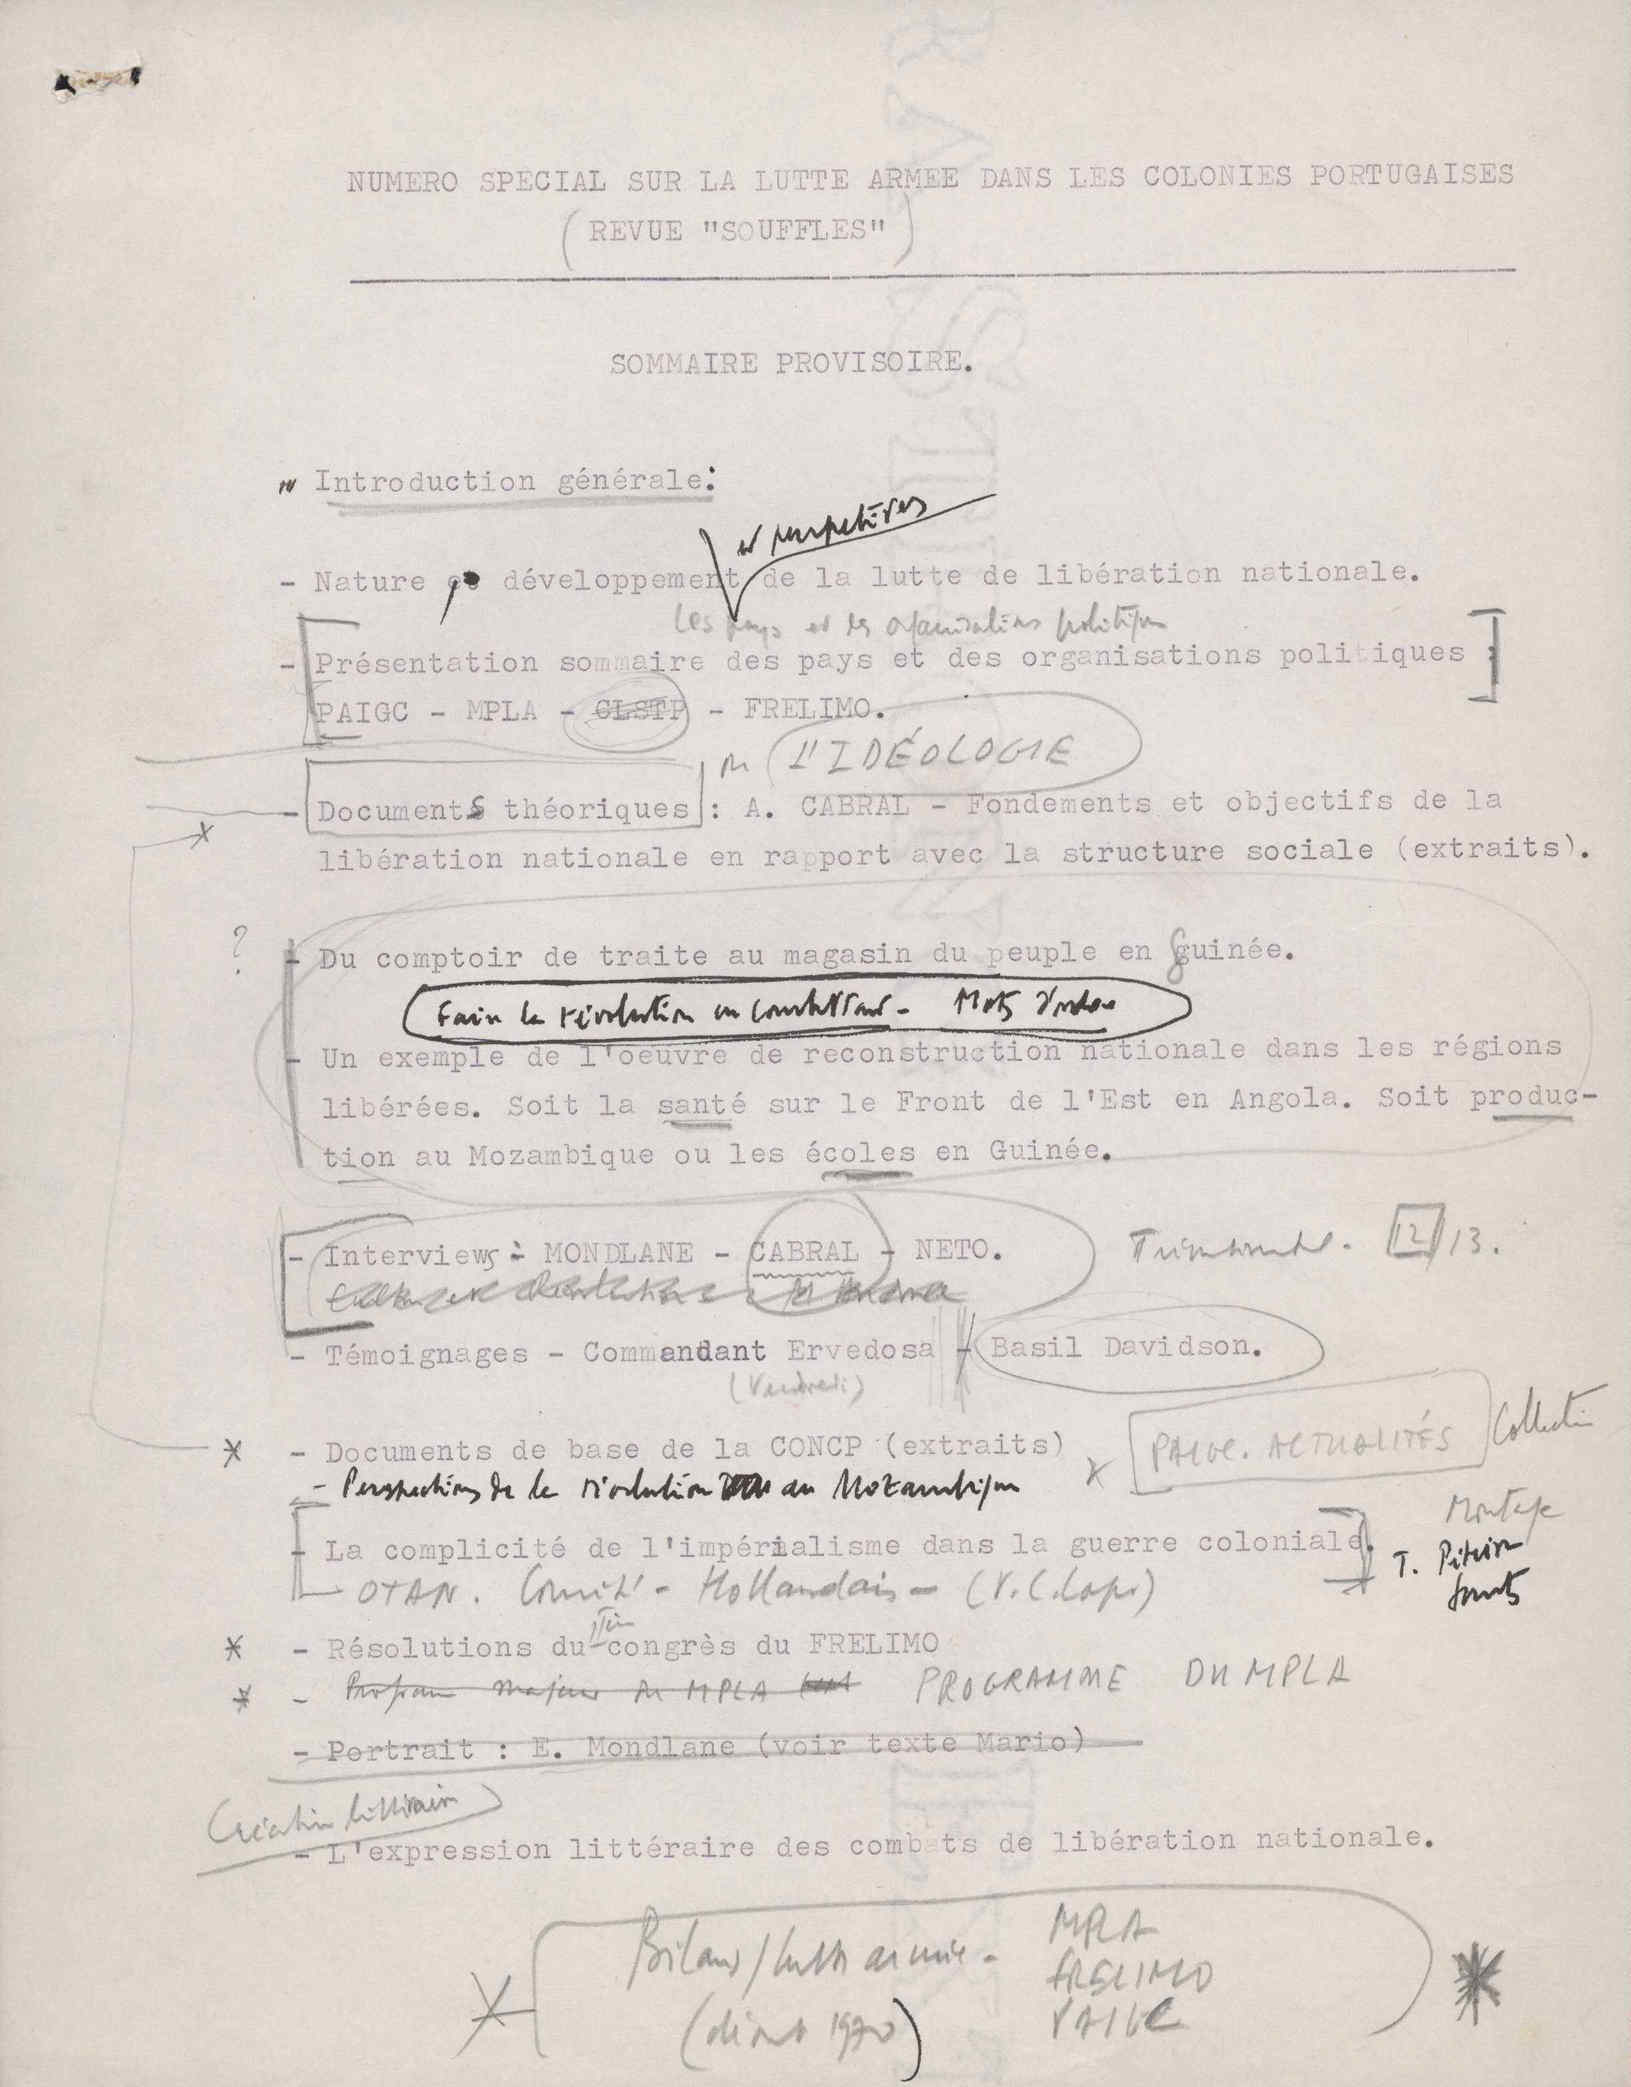 NUMERO SPECIAL SUR LA LUTTE ARMEE DANS LES COLONIES PORTUGAISES
(REVUE "SOUFFLES")
SOMMAIRE PROVISOIRE.
Introduction générale:
et perspectives
- Nature développement de la lutte de libération nationale.
Les pays et les organisations politiques
- Présentation sommaire des pays et des organisations politiques :
PAIGC - MPLA - CLSTP - FRELIMO.
L'IDÉOLOGIE
- Documents théoriques : A. CABRAL - Fondements et objectifs de la
libération nationale en rapport avec la structure sociale (extraits).
?
- Du comptoir de traite au magasin du peuple en guinée.
Faire la révolution en combattant - Mots d'ordre
- Un exemple de l'oeuvre de reconstruction nationale dans les régions
libérées. Soit la santé sur le Front de l'Est en Angola. Soit produc-
tion au Mozambique ou les écoles en Guinée.
- Interviews - MONDLANE - CABRAL - NETO. 12/13.
- Témoignages - Commandant Ervedosa - Basil Davidson.
(Vendredi)
* - Documents de base de la CONCP (extraits)
PAIGC. ACTUALITÉS Collection
- Perspectives de la révolution au Mozambique
Montage
- La complicité de l'impérialisme dans la guerre coloniale.
OTAN. Comité - Hollandais -
* - Résolutions du IIème congrès du FRELIMO
* - Programme majeur du MPLA PROGRAMME DU MPLA
- Portrait : E. Mondlane (voir texte Mario)
Création littéraire
- L'expression littéraire des combats de libération nationale.
Bilans / lutte armée - MPLA
FRELIMO
(début 1970) PAIGC